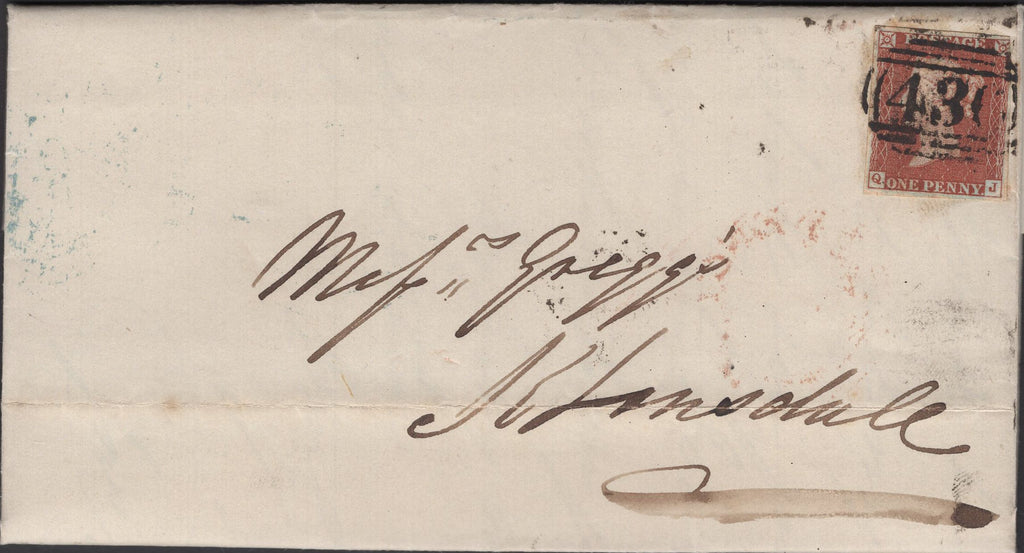 POSTAGE
43
Q ONE PENNY J
Messrs Griggs
K Lonsdale